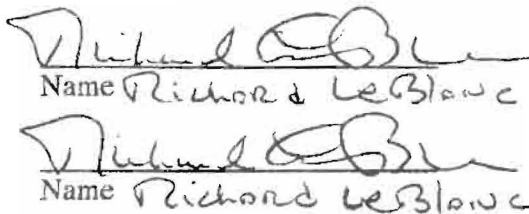 Richard LeBlanc
Name Richard LeBlanc
Richard LeBlanc
Name Richard LeBlanc